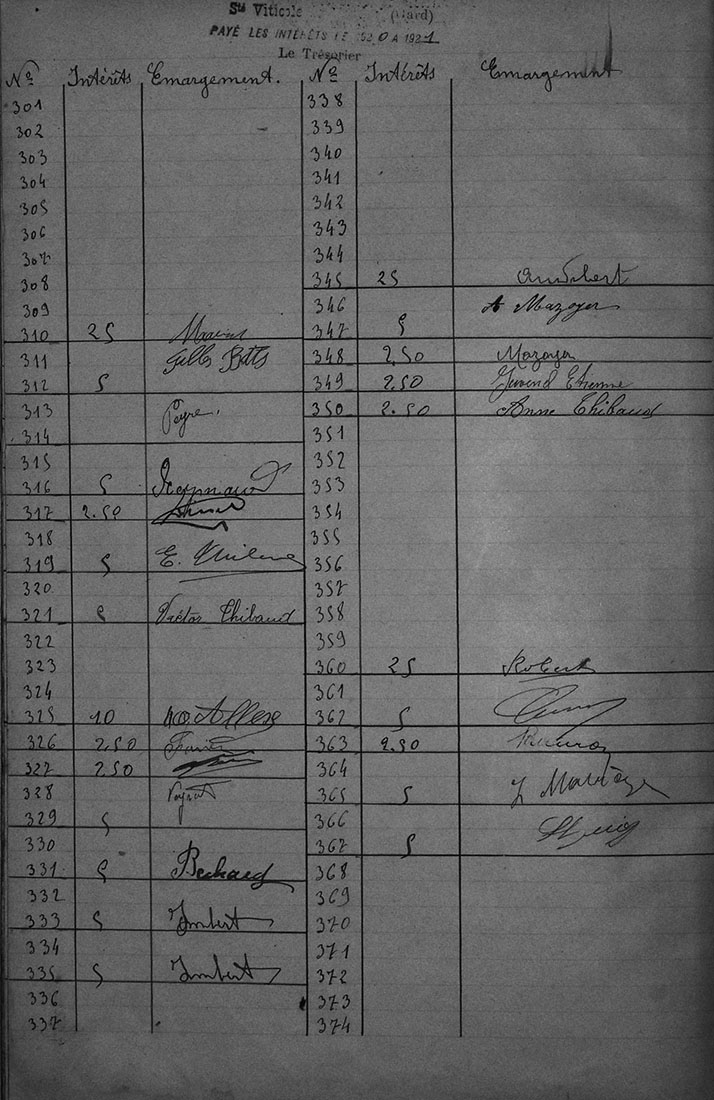 Sté Viticole (Gard)
PAYÉ LES INTÉRÊTS LE 1920 A 1921
Le Trésorier
No Intérêts Emargement.
301
302
303
304
305
306
307
308
309
310 25
311 Gilles
312 5
313 Peyre
314
315
316 5 Reynaud
317 2.50
318
319 5 E.
320
321 5 Victor Thibaud
322
323
324
325 10
326 2,50
327 2.50
328
329 5
330
331 5 Bechard
332
333 5 Imbert
334
335 5 Imbert
336
337
No Intérêts Emargement
338
339
340
341
342
343
344
345 25 Audibert
346 A Mazoyer
347 5
348 2,50 Mazoyer
349 2,50 Etienne
350 2.50 Anne Thibaud
351
352
353
354
355
356
357
358
359
360 25 Robert
361
362 5
363 2.50
364
365 5
366
367 5
368
369
370
371
372
373
374